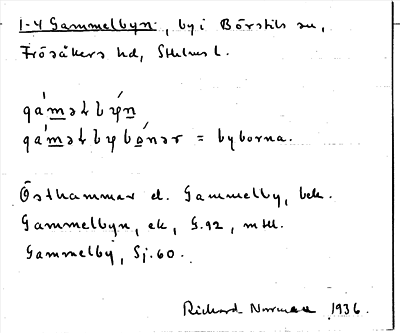 1-4 Gammelbyn., by i Börstils sn,
Frösåkers hd, Sthlms l.
gámaɫbýn
gámaɫbybónər = byborna.
Östhammar el. Gammelby, bek.
Gammelbyn, ek, G.92, mtl.
Gammelby, Sj. 60.
Richard Norman 1936.